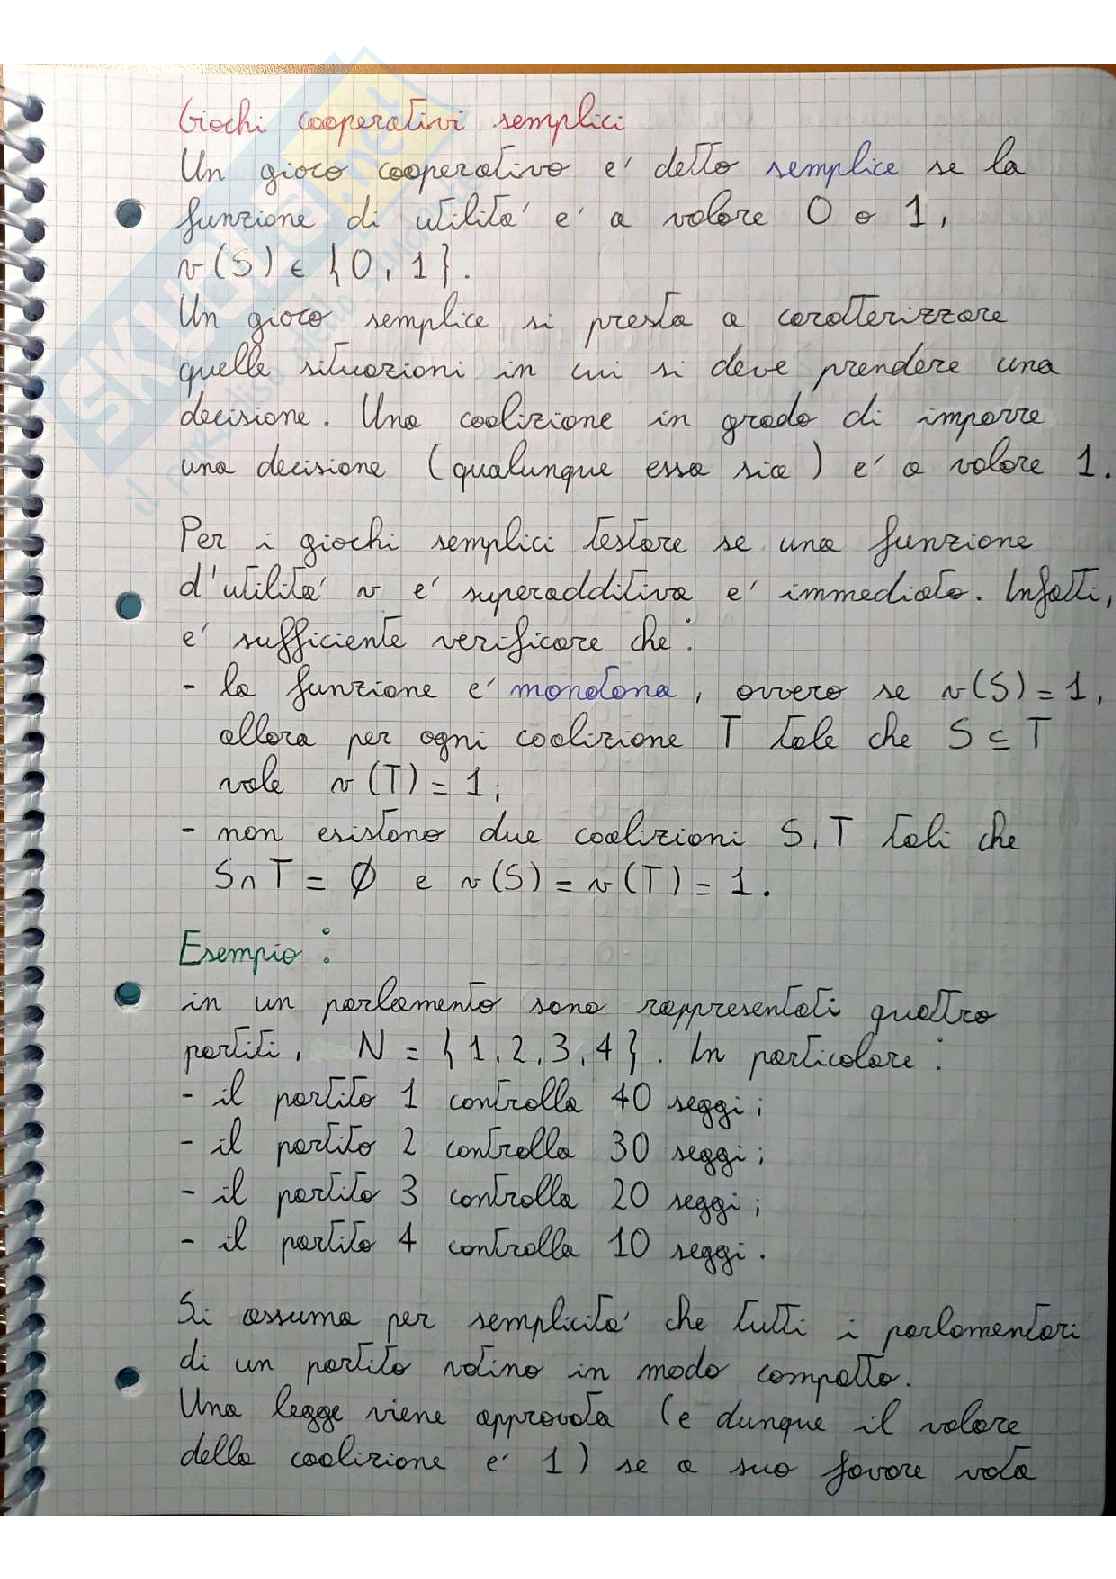 Giochi cooperativi semplici
Un gioco cooperativo e' detto semplice se la
funzione di utilita' e' a valore 0 o 1,
v(S) ∈ {0,1}.
Un gioco semplice si presta a caratterizzare
quelle situazioni in cui si deve prendere una
decisione. Una coalizione in grado di imporre
una decisione (qualunque essa sia) e' a valore 1.
Per i giochi semplici testare se una funzione
d'utilita' v e' superadditiva e' immediato. Infatti,
e' sufficiente verificare che:
- la funzione e' monotona, ovvero se v(S) = 1,
allora per ogni coalizione T tale che S ⊆ T
vale v(T) = 1;
- non esistono due coalizioni S, T tali che
S∩T = ∅ e v(S) = v(T) = 1.
Esempio:
in un parlamento sono rappresentati quattro
partiti, N = {1,2,3,4}. In particolare:
- il partito 1 controlla 40 seggi;
- il partito 2 controlla 30 seggi;
- il partito 3 controlla 20 seggi;
- il partito 4 controlla 10 seggi.
Si assuma per semplicita' che tutti i parlamentari
di un partito votino in modo compatto.
Una legge viene approvata (e dunque il valore
della coalizione e' 1) se a suo favore vota